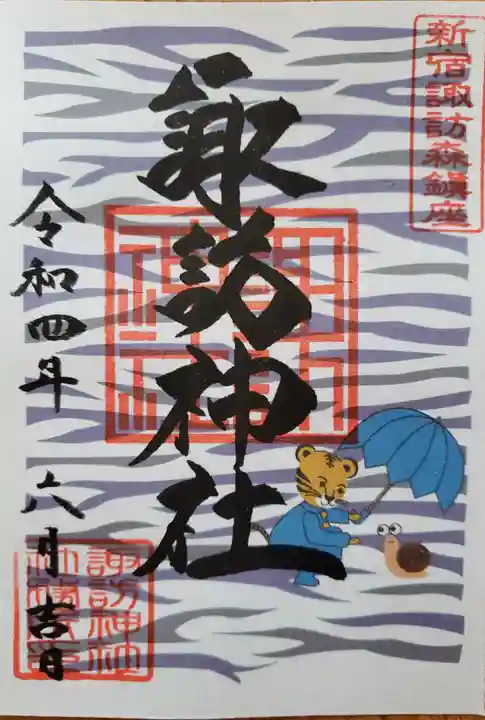 新宿諏訪森鎮座
諏訪神社
令和四年 六月吉日
諏訪神社